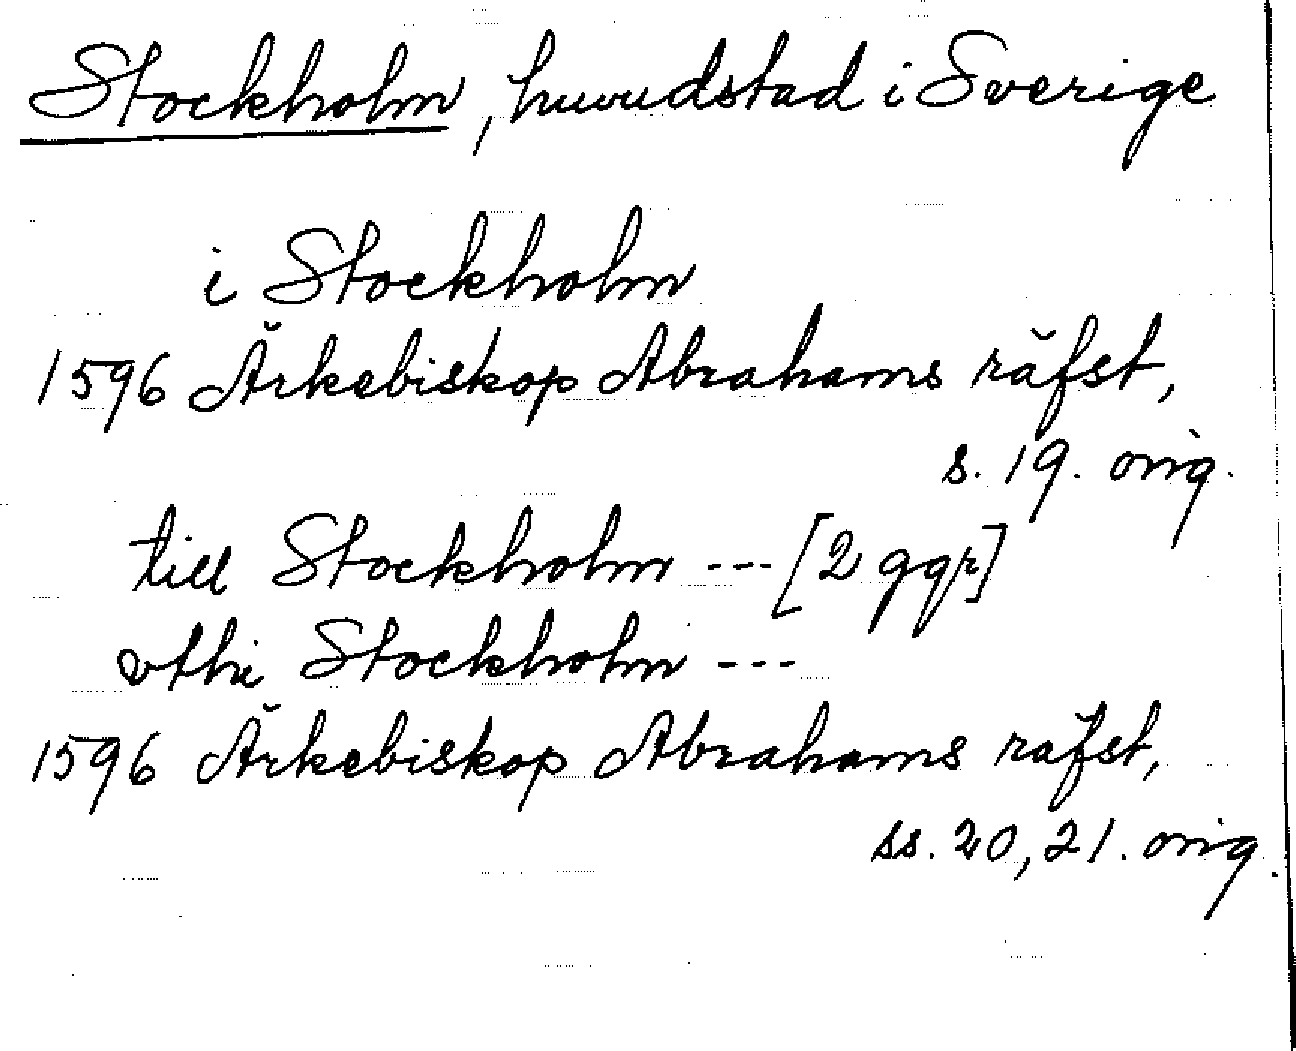 Stockholm, huvudstad i Sverige
i Stockholm
1596 Ärkebiskop Abrahams räfst,
s. 19. orig.
till Stockholm --- [2 ggr]
vthi Stockholm ---
1596 Ärkebiskop Abrahams räfst,
ss. 20, 21. orig.